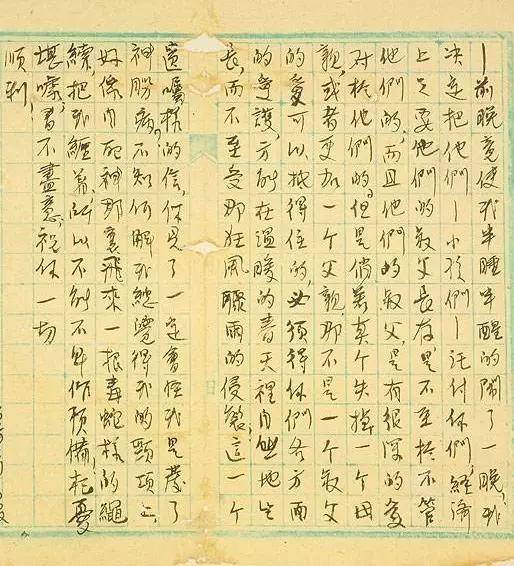 丨前晚竟使我半睡半醒的鬧了一晚,我
决定把他們丨小孩們丨託付你們,經濟
上只要他們的叔父長存,是不至於不管
他們的,而且他們的叔父,是有很深的愛
对於他們的。但是倘若真个失掉一个母
親,或者更加一个父親,那不是一个叔父
的愛可以抵得住的,必須得你們各方面
的爱護,方能在溫暖的青天裡自然地生
長,而不至受那狂風驟雨的侵襲。這一个
遺囑樣的信,你見了一定會怪我是發了
神經病,不知何解,我總覺得我的頸項上,
好像自死神那裏飛來一根毒蛇樣的繩
把我纏着,所以不能不早作预備,杞憂
堪嚎,書不盡意,祝你一切
順利